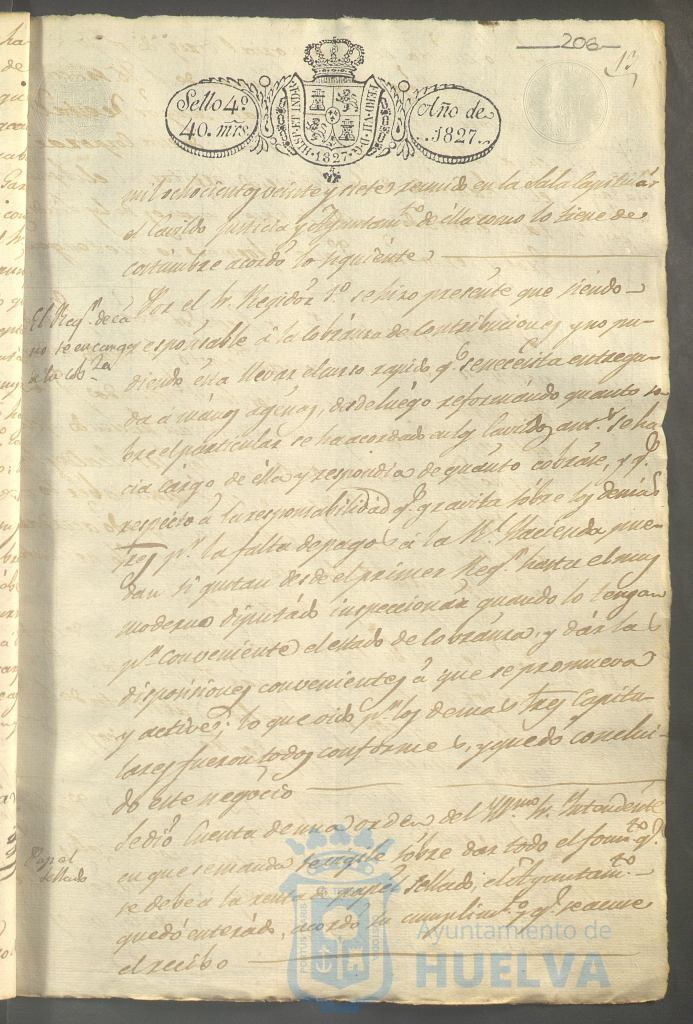 206
13
Sello 4º
40. mrs
HISP. ET IND. R.
FERD. VII. D. G.
1827
Año de
1827.
mil ochocientos veinte y siete reunido en la Sala Capitular
el Cavildo Justicia y Ayuntamto de ella como lo tiene de
costumbre acordó lo siguiente
Por el Sr. Regidor 1º se hizo presente que siendo
responsable á la cobranza de contribuciones y no pu-
diendo esta llevar el curso rapido qe se necesita entrega-
da á manos agenas, desde luego reformando quanto so-
bre el particular se ha acordado en los Cavildos antes se ha
cia cargo de ella y respondia de quanto cobrase, y qe
respecto á la responsabilidad qe gravita sobre los demas
Sres pr la falta de pagos á la Rl Hacienda pue-
dan si gustan desde el primer Regr hasta el mas
moderno diputado inspeccionar quando lo tengan
pr conveniente el estado de cobranza, y dar las
disposiciones convenientes á que se promueva
y active; lo que oido pr los demas Sres Capitu-
lares fueron todos conformes, y quedó conclui-
do este negocio
Se dió Cuenta de una orden del Sr. Intendente
en que se manda se vigile sobre dar todo el fomto qe
se debe a la renta de papel Sellado, el Ayuntamto
quedó enterado, acordó su cumplimto y qe se acuse
el recibo
El Regr de ca
no se encarga
de la cobza
Papel
sellado
Ayuntamiento de
HUELVA